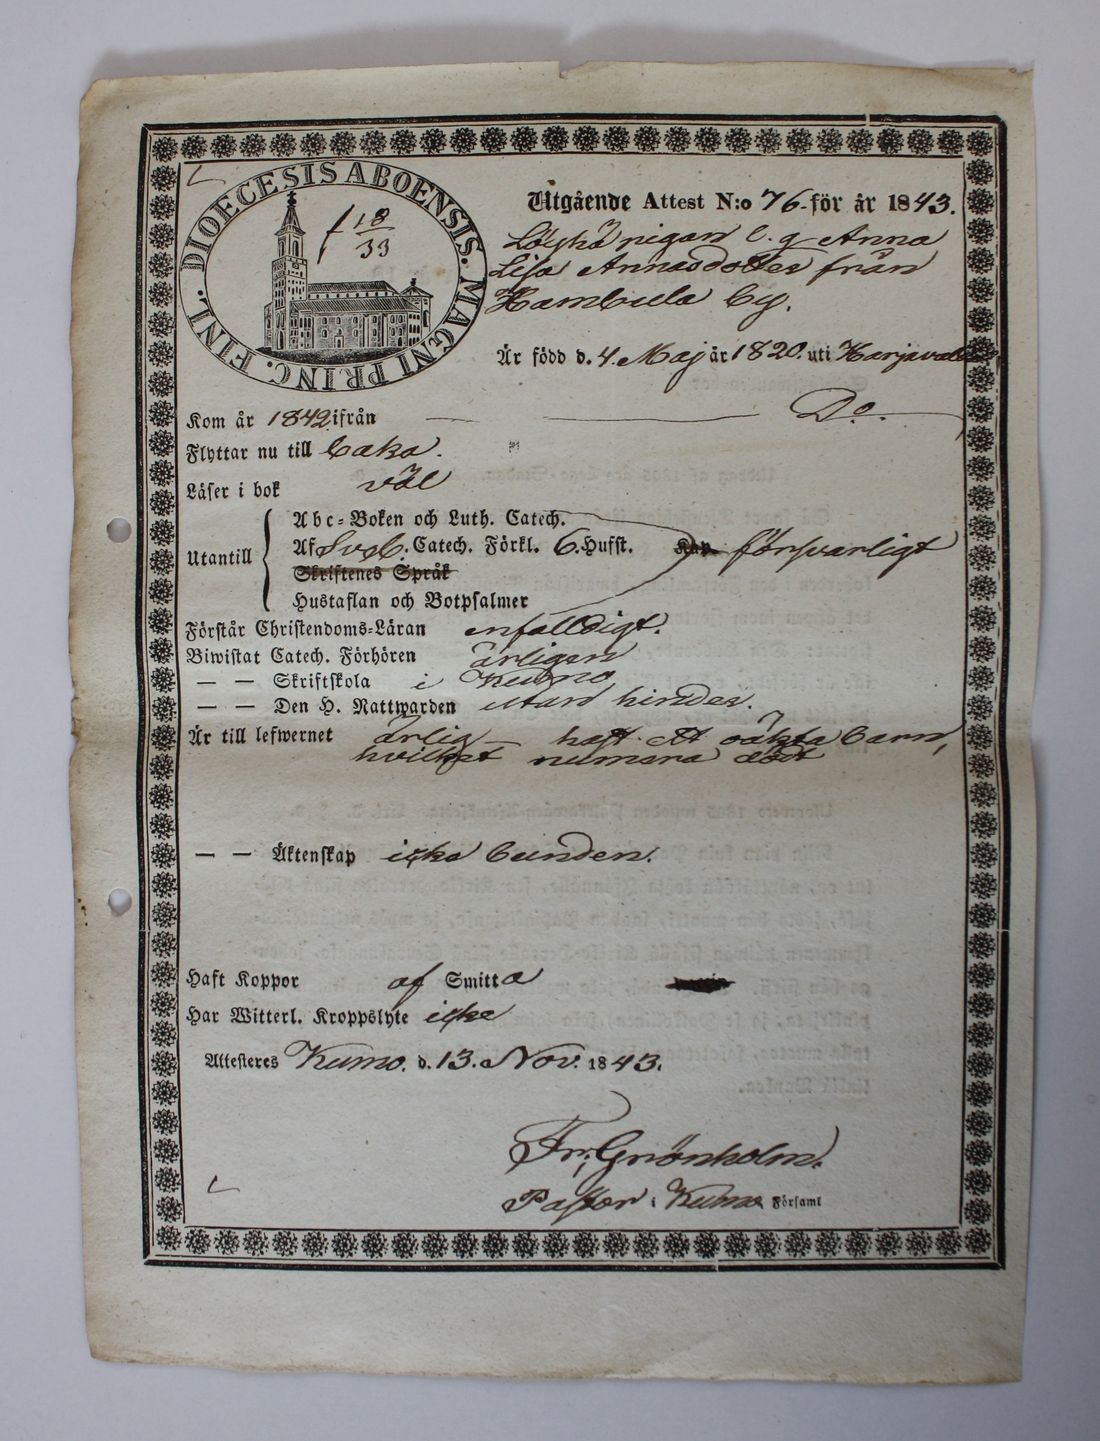 DIOECESIS ABOENSIS. MAGNI PRINC. FINL.
f 18/33
Utgående Attest N:o 76 för år 1843.
pigan e. g. Anna
Lisa Annasdotter från
Hambula by.
Är född d. 4. Maj år 1820. uti Harjavalta
Kom år 1842 ifrån Do.
Flyttar nu till baka.
Läser i bok väl
Utantill
Abc-Boken och Luth. Catech.
Af Sveb. Catech. Förkl. 6. Hufst. Kap försvarligt
Skriftenes Språk
Hustaflan och Botpsalmer
Förstår Christendoms-Läran enfalldigt.
Biwistat Catech. Förhören årligen
— — Skriftskola i Kumo
— — Den H. Nattwarden utan hinder.
Är till lefwernet ärlig — haft ett oäkta barn,
hvilket numera dödt
— — Äktenskap icke bunden.
Haft Koppor af Smitta
Har Witterl. Kroppslyte icke
Attesteres Kumo. d. 13. Nov. 1843.
Fr. Grönholm.
Pastor i Kumo Församl